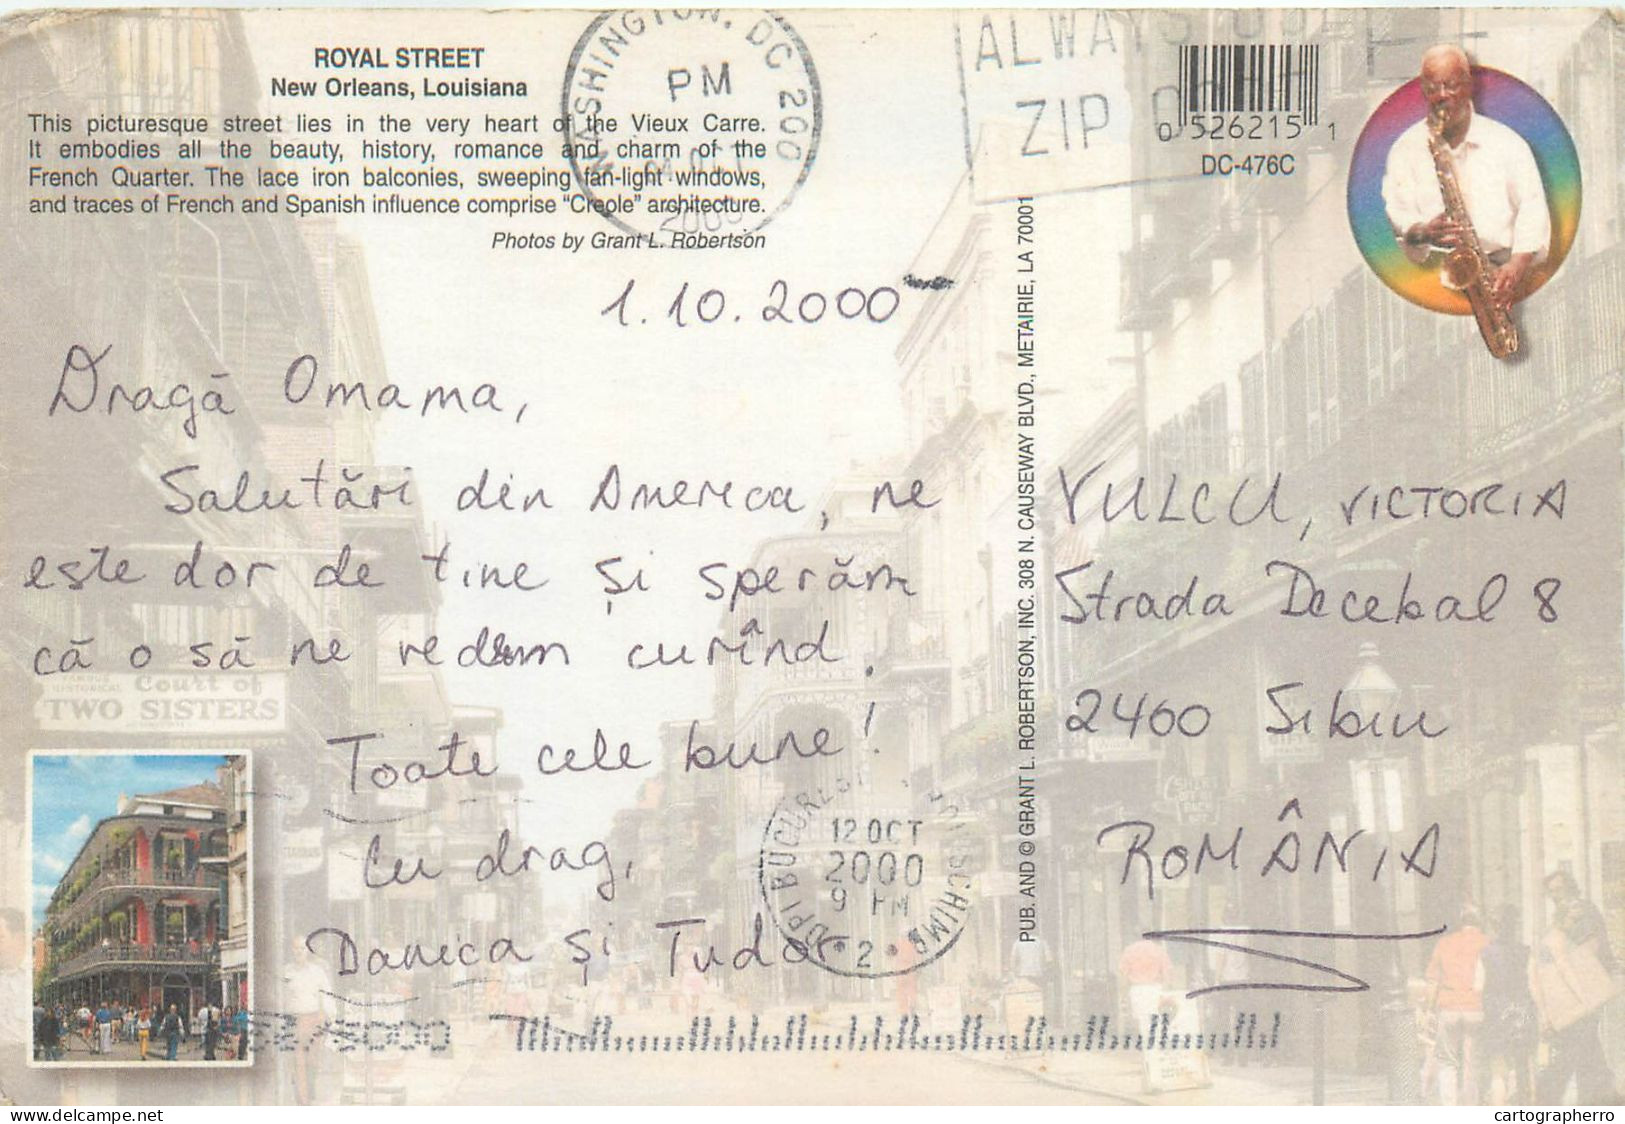 ROYAL STREET
New Orleans, Louisiana
This picturesque street lies in the very heart of the Vieux Carre.
It embodies all the beauty, history, romance and charm of the
French Quarter. The lace iron balconies, sweeping fan-light windows,
and traces of French and Spanish influence comprise “Creole” architecture.
Photos by Grant L. Robertson
WASHINGTON, DC 200
PM
2000
ALWAYS USE
ZIP
0 526215 1
DC-476C
1.10.2000
Dragă Omama,
Salutări din America, ne
este dor de tine și sperăm
că o să ne vedem curând.
Toate cele bune!
Cu drag,
Danica și Tudor
PUB. AND © GRANT L. ROBERTSON, INC. 308 N. CAUSEWAY BLVD., METAIRIE, LA 70001
VULCU, VICTORIA
Strada Decebal 8
2460 Sibiu
ROMÂNIA
Court of
TWO SISTERS
12 OCT
2000
9 PM
2
delcampe.net
cartographerro